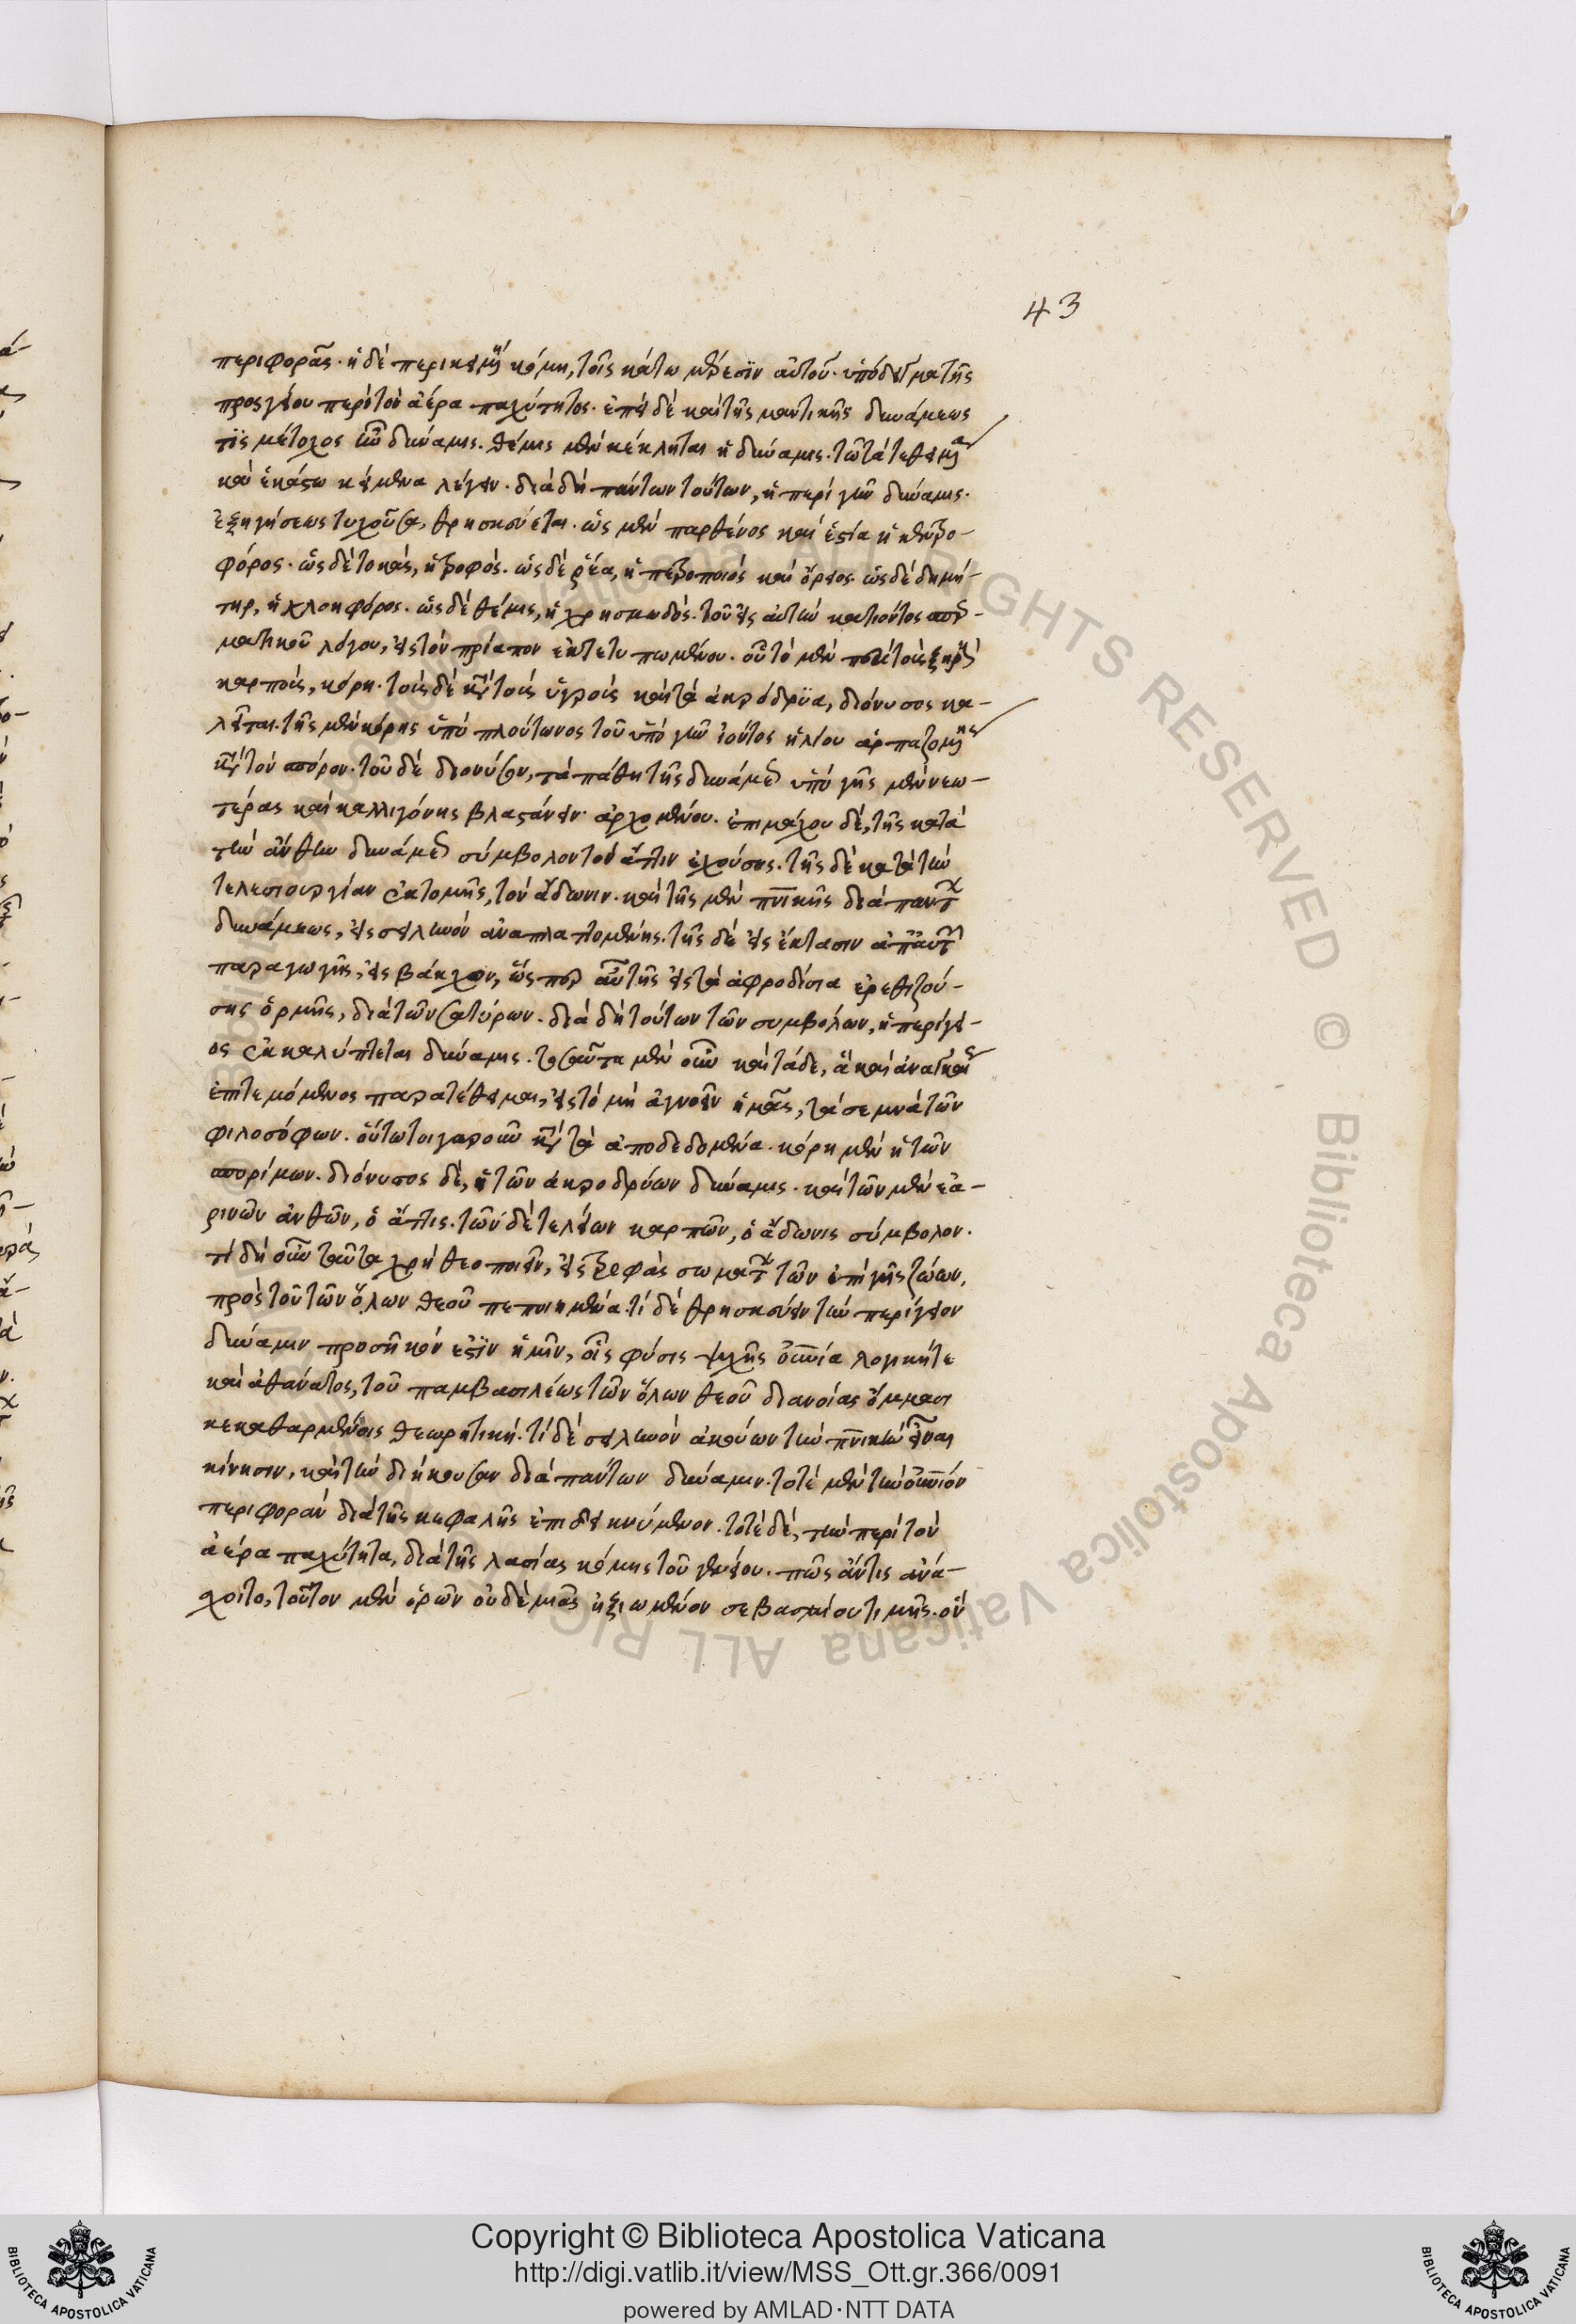 43
περιφορᾶς. ἡ δὲ περικειμένη κόμη, τοῖς κάτω μέρεσιν αὐτοῦ. ὑπόδειγμα τῆς
προσγείου περὶ τὸν ἀέρα παχύτητος. ἐπεὶ δὲ καὶ τῆς μαντικῆς δυνάμεως
τὶς μέτοχος ἦν δύναμις. θέμις μὲν κέκληται ἡ δύναμις. τῶ τὰ τεθειμένα
καὶ ἑκάστω κείμενα λέγειν. διὰ δὴ πάντων τούτων, ἡ περὶ γῆν δύναμις.
ἐξηγήσεως τυχοῦσα, θρησκεύεται. ὡς μὲν παρθένος καὶ ἑστία ἡ κεντρο-
φόρος. ὡς δὲ τοκὰς, ἡ τροφός. ὡς δὲ ῥέα, ἡ πετροποιὸς καὶ ὄρειος. ὡς δὲ δημή-
τηρ, ἡ χλοηφόρος. ὡς δὲ θέμις, ἡ χρησμωδός. τοῦ εἰς αὐτὴν κατιόντος σπερ-
ματικοῦ λόγου, εἰς τὸν πρίαπον ἐκτετυπωμένου. οὗ τὸ μὲν περὶ τοὺς ξηροὺς
καρποὺς, κόρη. τοῖς δὲ κατὰ τοὺς ὑγροὺς καὶ τὰ ἀκρόδρυα, διόνυσος κα-
λεῖται. τῆς μὲν κόρης ὑπὸ πλούτωνος τοῦ ὑπὸ γῆν ἰόντος ἡλίου ἁρπαζομένης
κατὰ τὸν σπόρον. τοῦ δὲ διονύσου, τὰ πάθη τῆς δυνάμεως ὑπὸ γῆς μὲν νεω-
τέρας καὶ καλλιγόνης βλαστάνειν ἀρχομένου. ἐπιμάχου δὲ, τῆς κατὰ
τὴν ἄνθην δυνάμεως σύμβολον τὸν ἄττιν ἐχούσης. τῆς δὲ κατὰ τὴν
τελεσιουργίαν ἐκτομῆς, τὸν ἄδωνιν. καὶ τῆς μὲν πνικῆς διὰ πάντων
δυνάμεως, εἰς σειληνὸν ἀναπλαττομένης. τῆς δὲ εἰς ἔκτασιν
παραγωγῆς, εἰς βάκχον, ὥσπερ αὖ τῆς εἰς τὰ ἀφροδίσια ἐρεθιζού-
σης ὁρμῆς, διὰ τῶν σατύρων. διὰ δὴ τούτων τῶν συμβόλων, ἡ περίγει-
ος ἐκκαλύπτεται δύναμις. τοσαῦτα μὲν οὖν καὶ τάδε, ἃ καὶ ἀναγκαίως
ἐπιτεμόμενος παρατέθειμαι, εἰς τὸ μὴ ἀγνοεῖν ἡμᾶς, τὰ σεμνὰ τῶν
φιλοσόφων. οὕτω τοιγαροῦν κατὰ τὰ ἀποδεδομένα. κόρη μὲν ἡ τῶν
σπορίμων. διόνυσος δὲ, ἡ τῶν ἀκροδρύων δύναμις. καὶ τῶν μὲν ἐα-
ρινῶν ἀνθῶν, ὁ ἄττις. τῶν δὲ τελείων καρπῶν, ὁ ἄδωνις σύμβολον.
τί δὴ οὖν ταῦτα χρὴ θεοποιεῖν, εἰς τροφὰς σωμάτων τῶν ἐπὶ γῆς ζώων,
πρὸς τοῦ τῶν ὅλων θεοῦ πεποιημένα. τί δὲ θρησκεύειν τὴν περίγειον
δύναμιν προσῆκόν ἐστιν ἡμῖν, οἷς φύσις ψυχῆς οὐνία λογικήτε
καὶ ἀθάνατος, τοῦ παμβασιλέως τῶν ὅλων θεοῦ διανοίας ὄμμασι
κεκαθαρμένοις θεωρητική. τί δὲ σειληνὸν ἀκούων τὴν πνικὴν εἶναι
κίνησιν, καὶ τὴν διήκουσαν διὰ πάντων δύναμιν. τοτὲ μὲν τὴν οὐνιόν
περιφορὰν διὰ τῆς κεφαλῆς ἐπιδεικνύμενον. τοτὲ δὲ, τὴν περὶ τὸν
ἀέρα παχύτητα, διὰ τῆς λασίας κόμης τοῦ γενείου. πῶς ἄν τις ἀνά-
σχοιτο, τοῦτον μὲν ὁρῶν οὐδὲ μιᾶς ἠξιωμένον σεβασμίου τιμῆς. ὃν
Copyright © Biblioteca Apostolica Vaticana
http://digi.vatlib.it/view/MSS_Ott.gr.366/0091
powered by AMLAD·NTT DATA